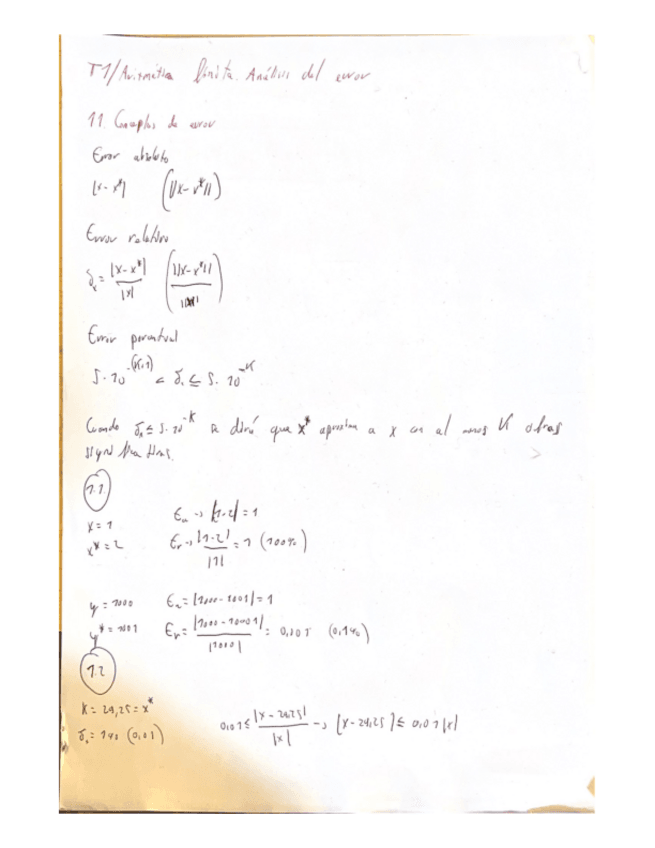 T1/ Aritmética finita. Análisis del error
1.1. Conceptos de error
Error absoluto
|x-x*| (||x-x*||)
Error relativo
δx = |x-x*| / |x| (||x-x*|| / ||x||)
Error porcentual
5·10^-(K+1) < δx ≤ 5·10^-K
Cuando δx ≤ 5·10^-K se dirá que x* aproxima a x con al menos K cifras
significativas.
1.1
x = 1 Ea -> |1-2| = 1
x* = 2 Er -> |1-2| / |1| = 1 (100%)
y = 1000 Ea = |1000-1001| = 1
y* = 1001 Er = |1000-1001| / |1000| = 0,001 (0,1%)
1.2
x = 24,25 = x*
δx = 1% (0,01) 0,01 ≤ |x-24,25| / |x| -> |x-24,25| ≤ 0,01|x|